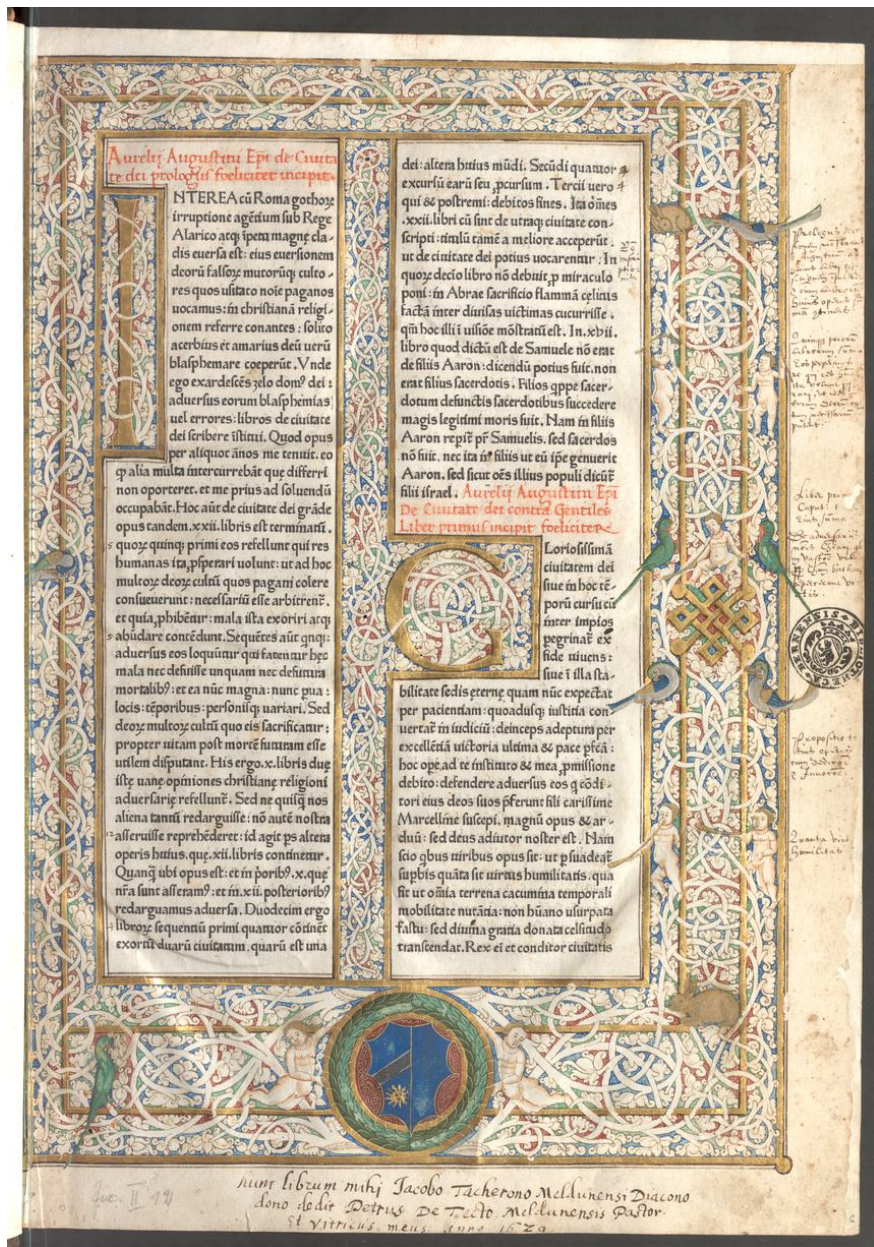 Aurelij Augustini Ep̄i de Ciuita
te dei prologus foeliciter incipit.
INTEREA cū Roma gothoꝝ
irruptione agētium sub Rege
Alarico atqꝫ īpetu magnę cla-
dis euersa est: eius euersionem
deorū falsoꝝ mutorūqꝫ culto-
res quos usitato noīe paganos
uocamus: in christianā religi-
onem referre conantes: solito
acerbius et amarius deū uerū
blasphemare coeperūt. Vnde
ego exardescēs zelo domꝰ dei:
aduersus eorum blasphemias
uel errores: libros de ciuitate
dei scribere īstitui. Quod opus
per aliquot ānos me tenuit. eo
ꝙ alia multa intercurrebāt quę differri
non oporteret. et me prius ad soluendū
occupabāt. Hoc aūt de ciuitate dei grāde
opus tandem .xxii. libris est terminatū.
quoꝝ quinqꝫ primi eos refellunt qui res
humanas ita ꝓsperari uolunt: ut ad hoc
multoꝝ deoꝝ cultū quos pagani colere
consueuerunt: necessariū esse arbitrent᷑.
et quia ꝓhibēt᷑: mala ista exoriri atqꝫ
abūdare contēdunt. Seq̄ētes aūt qnqꝫ:
aduersus eos loquūtur qui fatentur hęc
mala nec defuisse unquam nec defutura
mortalibꝰ: et ea nūc magna: nunc pua:
locis: tēporibus: personisqꝫ uariari. Sed
deoꝝ multoꝝ cultū quo eis sacrificatur:
propter uitam post mortē futuram esse
utilem disputant. His ergo .x. libris duę
istę uanę opiniones christianę religioni
aduersarię refellunt᷑. Sed ne quisqꝫ nos
aliena tantū redarguisse: nō autē nostra
asseruisse reprehēderet: id agit ps altera
operis huius. quę .xii. libris continetur.
Quanqꝫ ubi opus est: et in p̄oribꝰ .x. quę
nr̄a sunt asseramꝰ: et in .xii. posterioribꝰ
redarguamus aduersa. Duodecim ergo
libroꝝ sequentiū primi quatuor cōtinēt
exortū duarū ciuitatum. quarū est una
dei: altera huius mūdi. Secūdi quatuor
excursū earū seu ꝓcursum. Tercii uero
qui & postremi: debitos fines. Ita om̄es
.xxii. libri cū sint de utraqꝫ ciuitate con-
scripti: titulū tamē a meliore acceperūt.
ut de ciuitate dei potius uocarentur. In
quoꝝ decio libro nō debuit, p miraculo
poni: in Abrae sacrificio flammā cęlitus
factā inter diuisas uictimas cucurrisse.
qm̄ hoc illi ī uisiōe mōstratū est. In .xvii.
libro quod dictū est de Samuele nō erat
de filiis Aaron: dicendū potius fuit. non
erat filius sacerdotis. Filios qppe sacer-
dotum defunctis sacerdotibus succedere
magis legitimi moris fuit. Nam in filiis
Aaron repit᷑ pr̄ Samuelis. sed sacerdos
nō fuit. nec ita in filiis ut eū īpe genuerit
Aaron. sed sicut oēs illius populi dicūt᷑
filii israel. Aurelij Augustini Ep̄i
De Ciuitate dei contra Gentiles
Liber primus incipit foeliciter
Gloriosissimā
ciuitatem dei
siue in hoc tē-
porū cursu cū
inter impios
pegrinat᷑ ex
fide uiuens:
siue ī illa sta-
bilitate sedis ęternę quam nūc expectat
per pacientiam: quoadusqꝫ iustitia con-
uertat᷑ in iudiciū: deinceps adeptura per
excellētiā uictoria ultima & pace pfcā:
hoc ope ad te īnstituto & mea ꝓmissione
debito: defendere aduersus eos q cōdi-
tori eius deos suos p̄ferunt fili carissime
Marcelline suscepi. magnū opus & ar-
duū: sed deus adiutor noster est. Nam
scio qbus uiribus opus sit: ut p̄suadeat᷑
supbis quāta sit uirtus humilitatis. qua
fit ut om̄ia terrena cacumina temporali
mobilitate nutātia: non hūano usurpata
fastu: sed diuina gratia donata celsitudo
transcendat. Rex ei et conditor ciuitatis
BIBLIOTHECA BERNENSIS
hunc librum mihj Jacobo Tacherono Meldunensi Diacono
dono dedit Petrus De Tecto Meldunensis Pastor.
Et Vitricus meus. Anno 1620